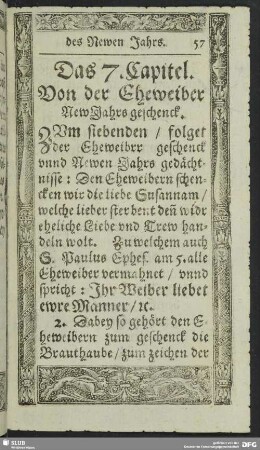 des Newen Jahrs. 57
Das 7. Capitel.
Von der Eheweiber
New Jahrs geschenck.
ZVm siebenden / folget
der Eheweibrr geschenck
vnnd Newen Jahrs gedächt-
nisse: Den Eheweibern schen-
cken wir die liebe Susannam /
welche lieber sterbent deñ widr
eheliche Liebe vnd Trew han-
deln wolt. Zu welchem auch
S. Paulus Ephes. am 5. alle
Eheweiber vermahnet / vnnd
spricht: Ihr Weiber liebet
ewre Männer / ꝛc.
2. Dabey so gehört den E-
heweibern zum geschenck die
Brauthaube / zum zeichen der
SLUB
DFG